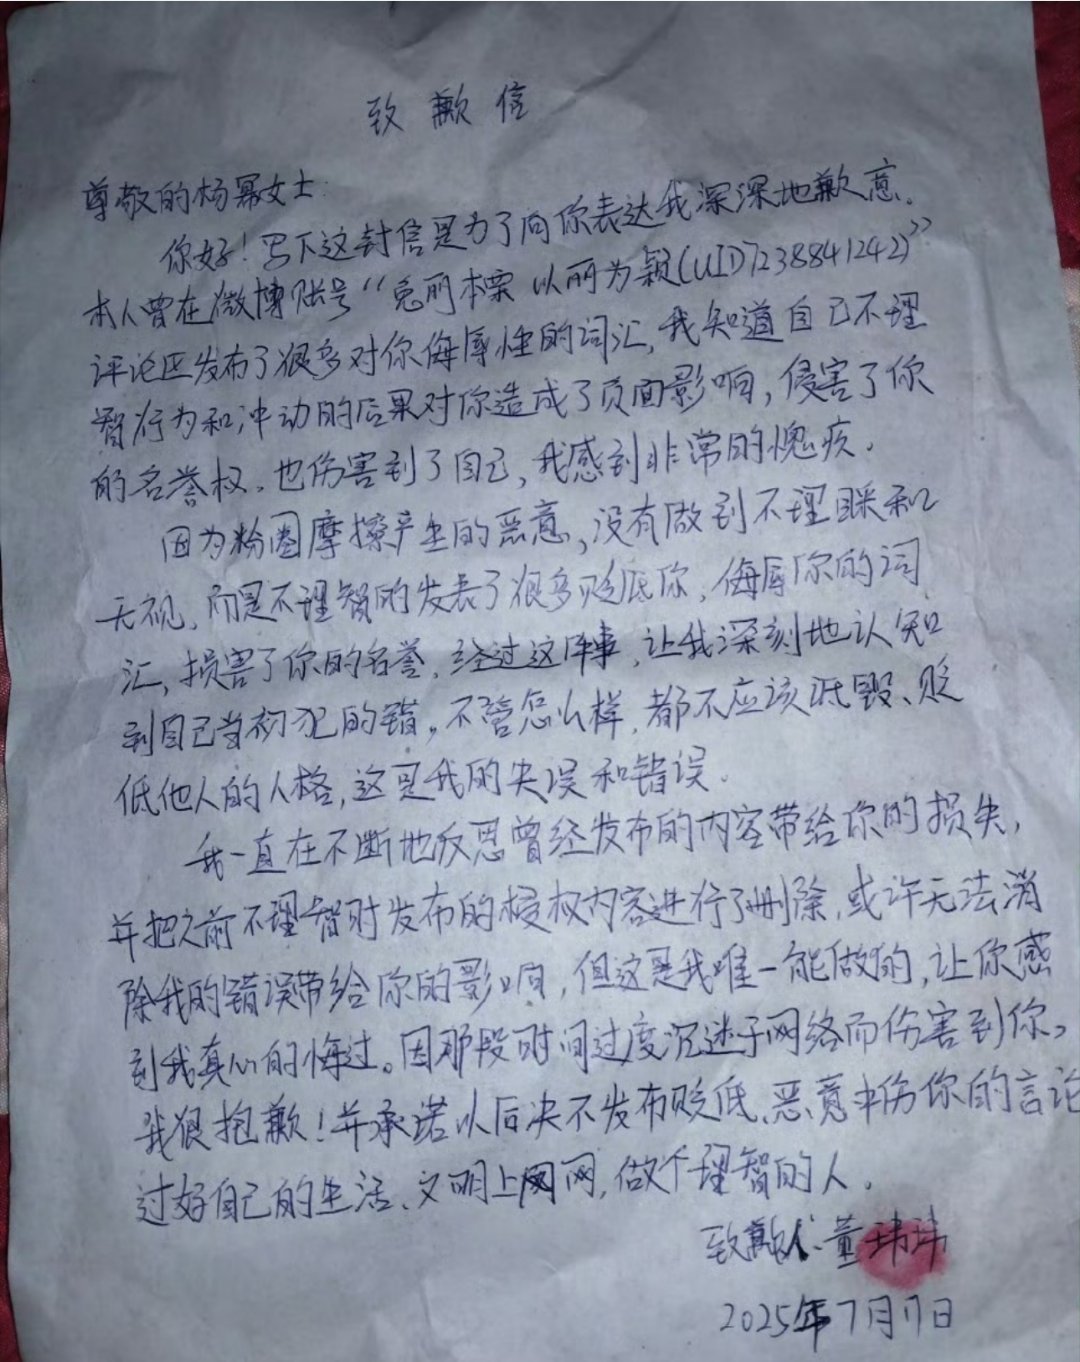 致歉信
尊敬的杨幂女士:
你好!写下这封信是为了向你表达我深深地歉意。
本人曾在微博账号“兔丽本栗 以丽为颖(UID7238841242)”
评论区发布了很多对你侮辱性的词汇,我知道自己不理
智行为和冲动的后果对你造成了负面影响,侵害了你
的名誉权,也伤害到了自己,我感到非常的愧疚.
因为粉圈摩擦产生的恶意,没有做到不理睬和
无视,而是不理智的发表了很多贬低你,侮辱你的词
汇,损害了你的名誉,经过这件事,让我深刻地认知
到自己当初犯的错。不管怎么样,都不应该诋毁、贬
低他人的人格,这是我的失误和错误.
我一直在不断地反思曾经发布的内容带给你的损失,
并把之前不理智时发布的侵权内容进行了删除,或许无法消
除我的错误带给你的影响,但这是我唯一能做的,让你感
到我真心的悔过。因那段时间过度沉迷于网络而伤害到你,
我很抱歉!并承诺以后决不发布贬低、恶意中伤你的言论
过好自己的生活、文明上网,做个理智的人.
致歉人:董玮玮
2025年7月17日